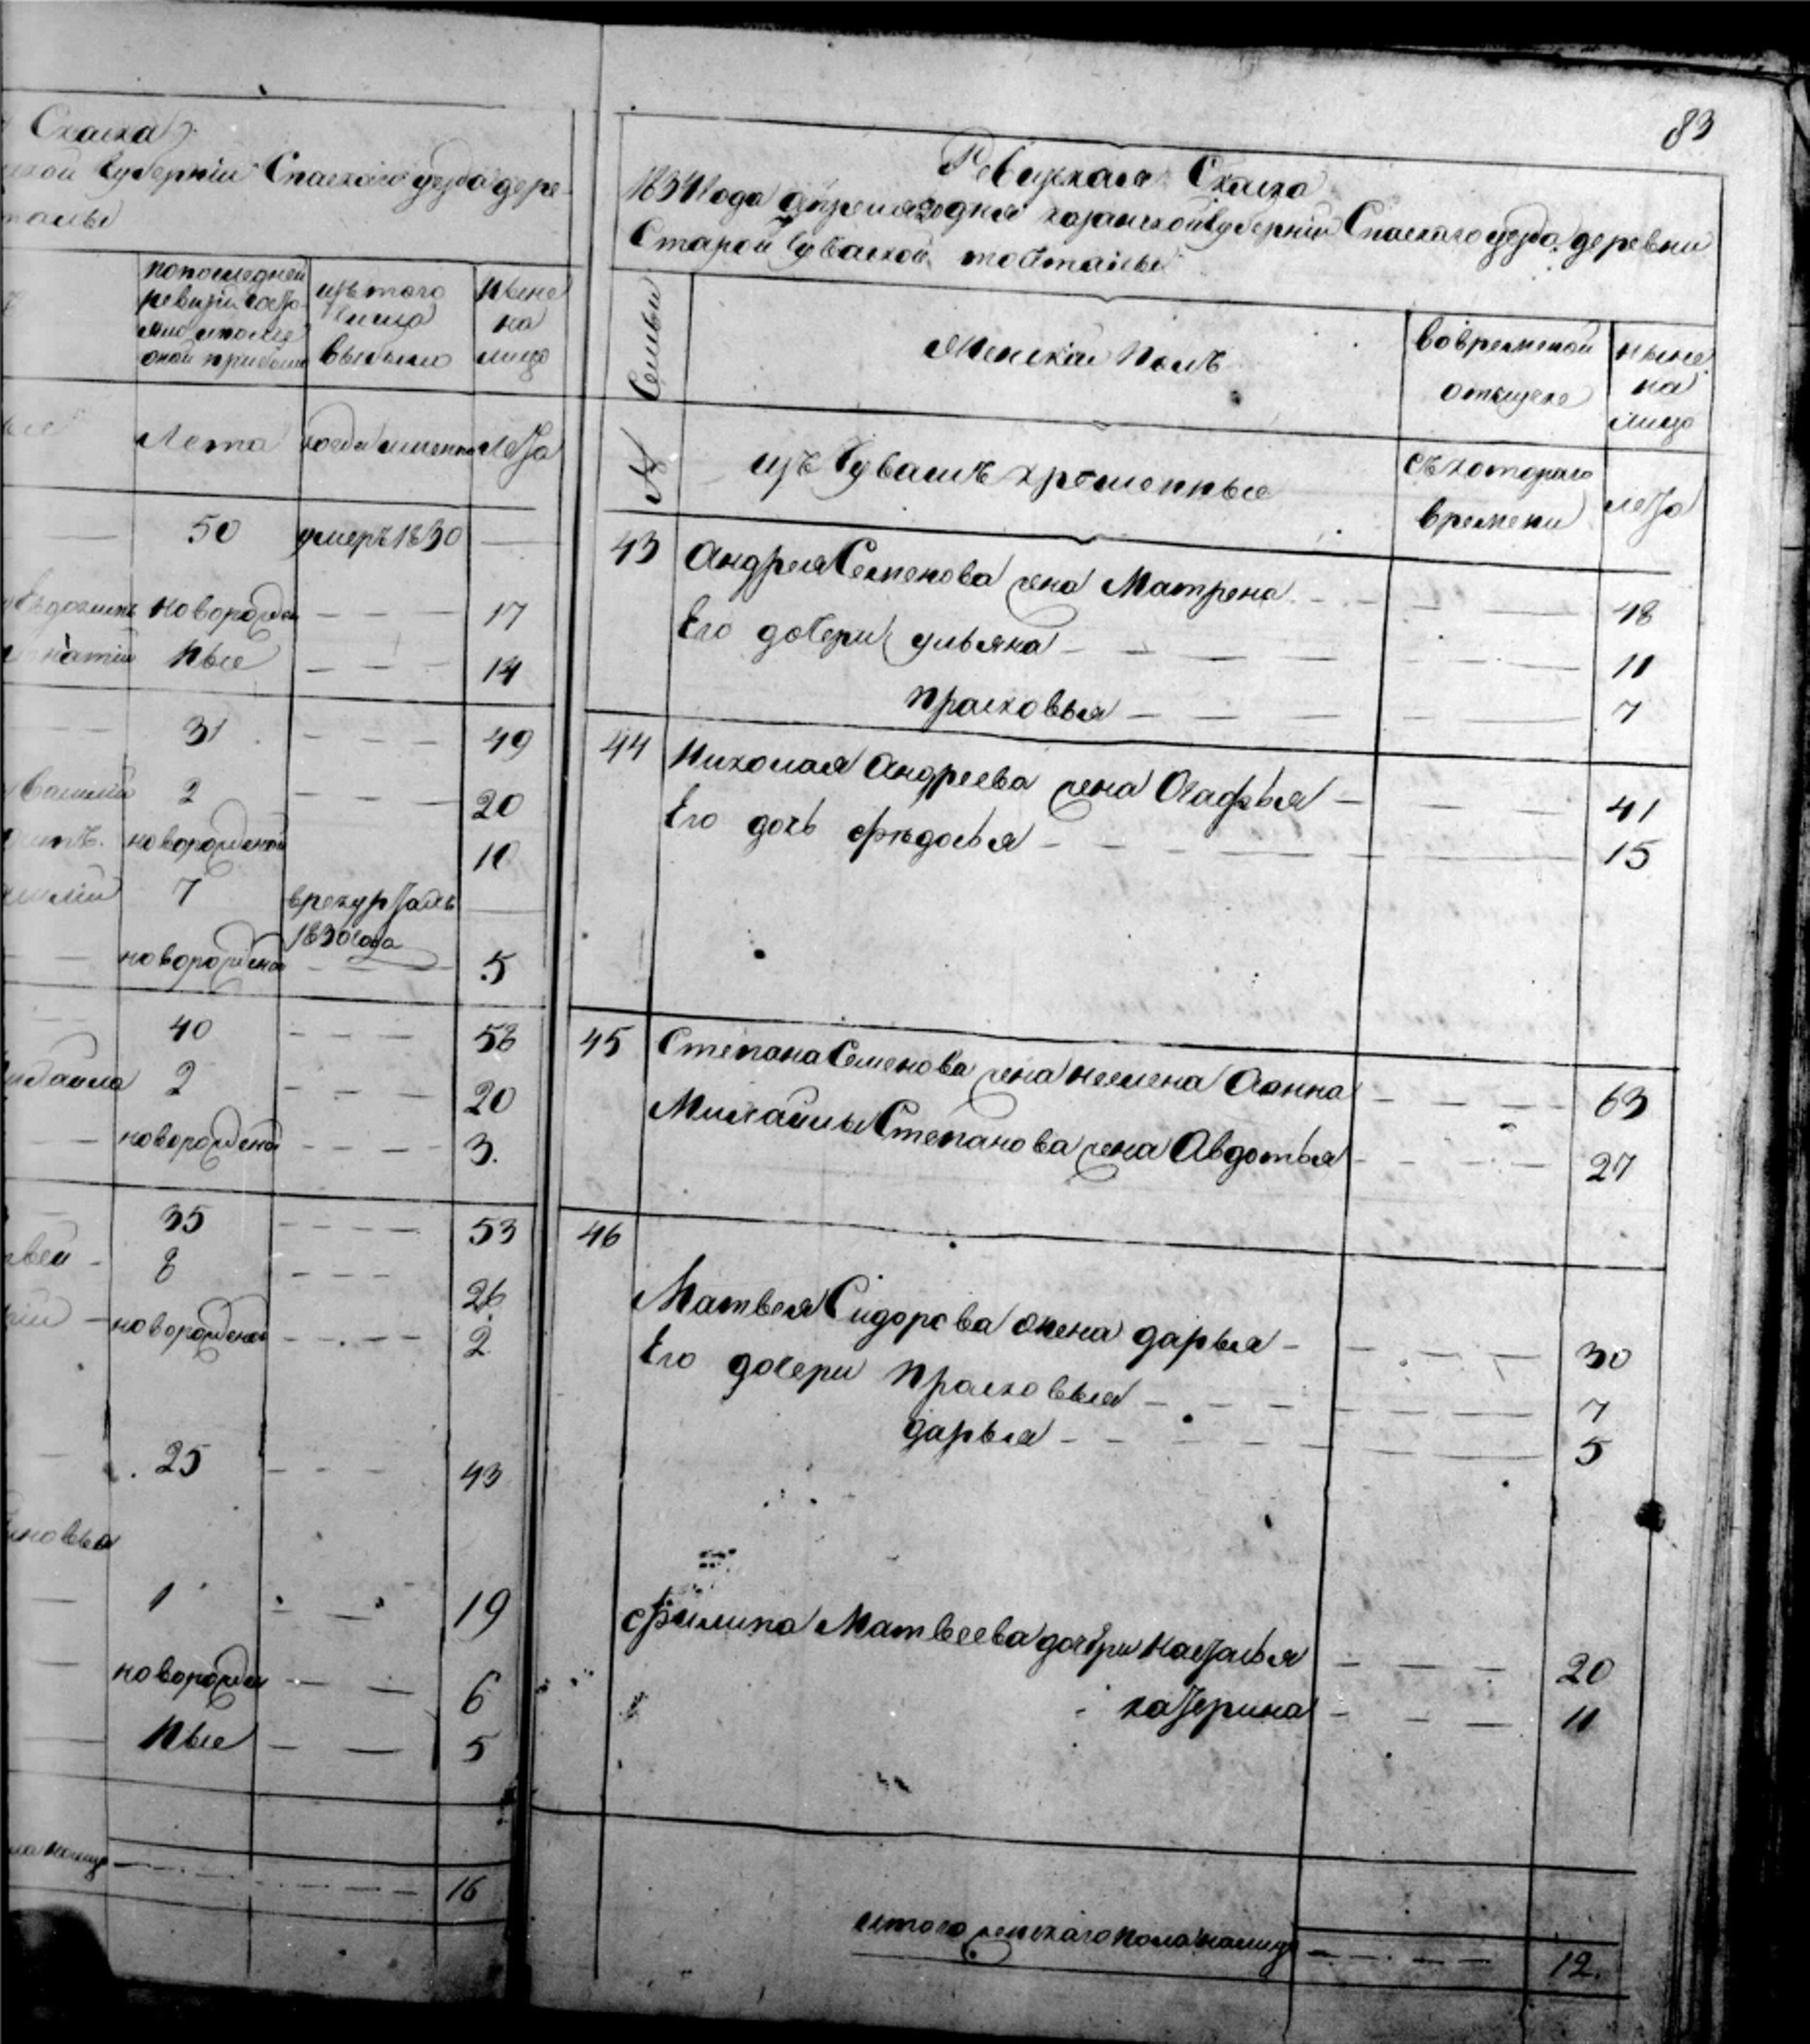 Сказка
ской Губернiи Спаскаго уезда дере-
попоследней
ревизiи состо
изътого
числа
выбыли
ныне
на
лицо
Лета
когда именно
лета
50 умеръ 1830
новорожден 17
ные 14
31 49
Василiй 2 20
новорожденой 10
7 врекрутахъ
1830 года
новорожденой 5
40 58
2 20
новорожденой 3.
35 53
8 26
новорожденой 2
25 43
1 19
новорожден 6
ные 5
16
83
Ревизская Сказка
1834 года апреля 30 дня казанской Губернiи Спаскаго уезда деревни
Старой Чуваской
Семьи
Женскiй полъ
вовременой
отлучке
ныне
на
лицо
№
изъ Чувашъ крещенные
съкотораго
времени
лета
43 Андрея Семенова жена Матрена 48
Его дочери ульяна 11
прасковья 7
44 Николая Андреева жена Агафья 41
Его дочь федосья 15
45 Степана Семенова жена Анна 63
Михайлы Степанова жена Авдотья 27
46
Матвея Сидорова жена дарья 30
Его дочери прасковья 7
дарья 5
филипа Матвеева дочери наталья 20
катерина 11
итого женскаго пола налицо 12.